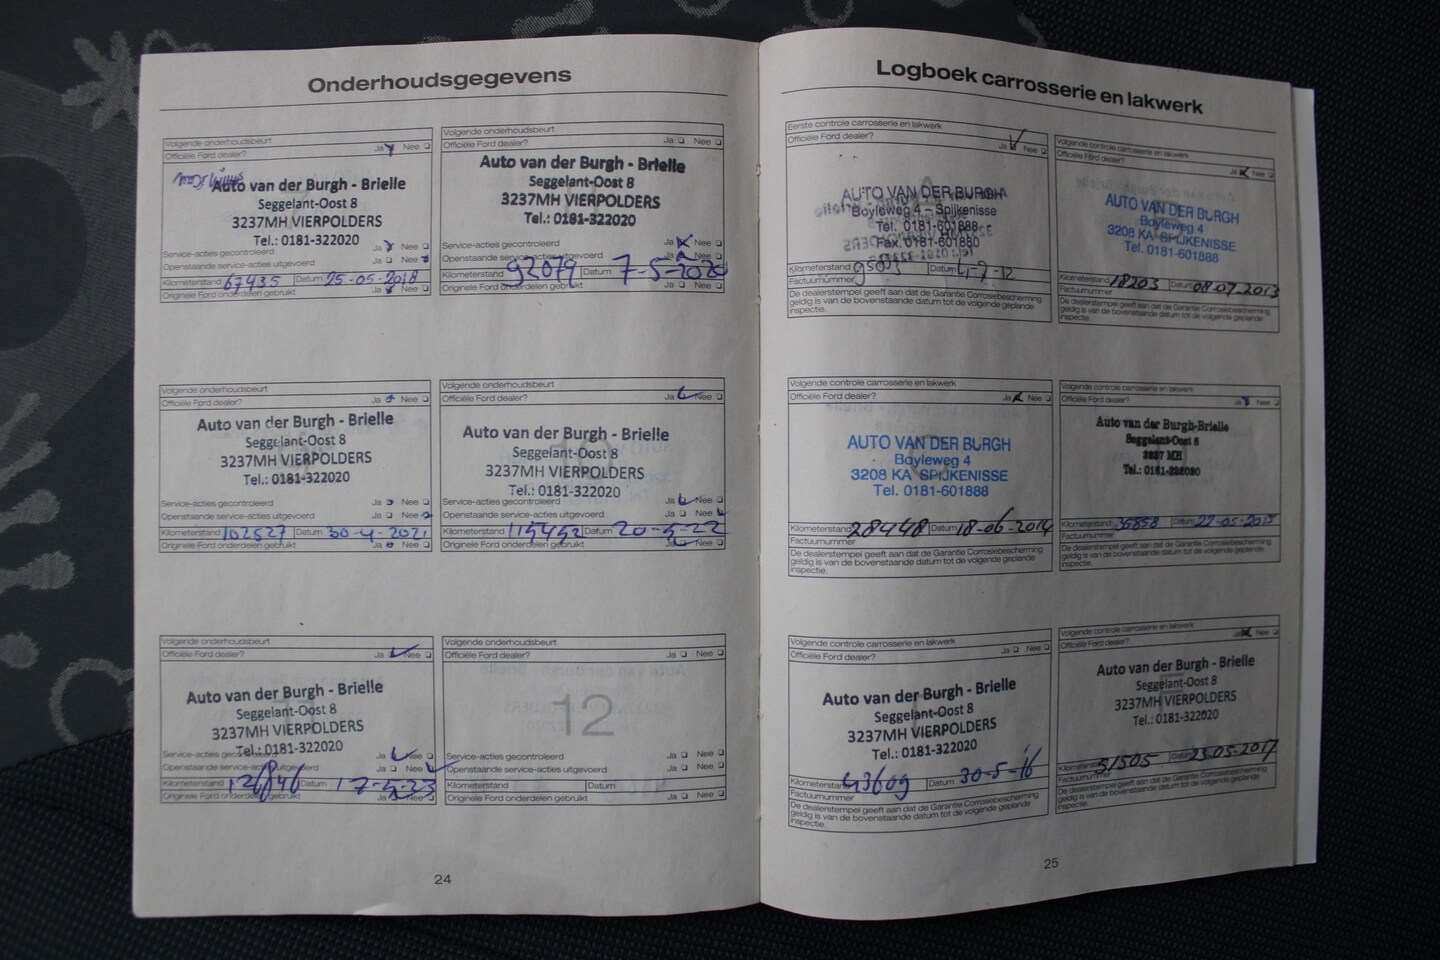 Onderhoudsgegevens
Volgende onderhoudsbeurt
Officiële Ford dealer? Ja Nee
Auto van der Burgh - Brielle
Seggelant-Oost 8
3237MH VIERPOLDERS
Tel.: 0181-322020
Service-acties gecontroleerd Ja Nee
Openstaande service-acties uitgevoerd Ja Nee
Kilometerstand 67435 Datum 25-05-2018
Originele Ford onderdelen gebruikt Ja Nee
Volgende onderhoudsbeurt
Officiële Ford dealer? Ja Nee
Auto van der Burgh - Brielle
Seggelant-Oost 8
3237MH VIERPOLDERS
Tel.: 0181-322020
Service-acties gecontroleerd Ja Nee
Openstaande service-acties uitgevoerd Ja Nee
Kilometerstand 92079 Datum 7-5-2020
Originele Ford onderdelen gebruikt Ja Nee
Volgende onderhoudsbeurt
Officiële Ford dealer? Ja Nee
Auto van der Burgh - Brielle
Seggelant-Oost 8
3237MH VIERPOLDERS
Tel.: 0181-322020
Service-acties gecontroleerd Ja Nee
Openstaande service-acties uitgevoerd Ja Nee
Kilometerstand 102527 Datum 30-4-2021
Originele Ford onderdelen gebruikt Ja Nee
Volgende onderhoudsbeurt
Officiële Ford dealer? Ja Nee
Auto van der Burgh - Brielle
Seggelant-Oost 8
3237MH VIERPOLDERS
Tel.: 0181-322020
Service-acties gecontroleerd Ja Nee
Openstaande service-acties uitgevoerd Ja Nee
Kilometerstand 115452 Datum 20-5-22
Originele Ford onderdelen gebruikt Ja Nee
Volgende onderhoudsbeurt
Officiële Ford dealer? Ja Nee
Auto van der Burgh - Brielle
Seggelant-Oost 8
3237MH VIERPOLDERS
Tel.: 0181-322020
Service-acties gecontroleerd Ja Nee
Openstaande service-acties uitgevoerd Ja Nee
Kilometerstand 126846 Datum
Originele Ford onderdelen gebruikt Ja Nee
Volgende onderhoudsbeurt
Officiële Ford dealer? Ja Nee
12
Service-acties gecontroleerd Ja Nee
Openstaande service-acties uitgevoerd Ja Nee
Kilometerstand Datum
Originele Ford onderdelen gebruikt Ja Nee
24
Logboek carrosserie en lakwerk
Eerste controle carrosserie en lakwerk
Officiële Ford dealer? Ja Nee
AUTO VAN DER BURGH
Boyleweg 4 – Spijkenisse
Tel. 0181-601888
Fax. 0181-601880
Kilometerstand Datum
Factuurnummer
De dealerstempel geeft aan dat de Garantie Corrosiebescherming
geldig is van de bovenstaande datum tot de volgende geplande
inspectie.
Volgende controle carrosserie en lakwerk
Officiële Ford dealer? Ja Nee
AUTO VAN DER BURGH
Boyleweg 4
3208 KA SPIJKENISSE
Tel. 0181-601888
Kilometerstand 18203 Datum 08-07-2013
Factuurnummer
De dealerstempel geeft aan dat de Garantie Corrosiebescherming
geldig is van de bovenstaande datum tot de volgende geplande
inspectie.
Volgende controle carrosserie en lakwerk
Officiële Ford dealer? Ja Nee
AUTO VAN DER BURGH
Boyleweg 4
3208 KA SPIJKENISSE
Tel. 0181-601888
Kilometerstand 28448 Datum 18-06-2014
Factuurnummer
De dealerstempel geeft aan dat de Garantie Corrosiebescherming
geldig is van de bovenstaande datum tot de volgende geplande
inspectie.
Volgende controle carrosserie en lakwerk
Officiële Ford dealer? Ja Nee
Auto van der Burgh-Brielle
Seggelant-Oost 8
3237 MH
Tel.: 0181-322020
Kilometerstand 35858 Datum 22-05-2015
Factuurnummer
De dealerstempel geeft aan dat de Garantie Corrosiebescherming
geldig is van de bovenstaande datum tot de volgende geplande
inspectie.
Volgende controle carrosserie en lakwerk
Officiële Ford dealer? Ja Nee
Auto van der Burgh - Brielle
Seggelant-Oost 8
3237MH VIERPOLDERS
Tel.: 0181-322020
Kilometerstand 43609 Datum 30-5-16
Factuurnummer
De dealerstempel geeft aan dat de Garantie Corrosiebescherming
geldig is van de bovenstaande datum tot de volgende geplande
inspectie.
Volgende controle carrosserie en lakwerk
Officiële Ford dealer? Ja Nee
Auto van der Burgh - Brielle
Seggelant-Oost 8
3237MH VIERPOLDERS
Tel.: 0181-322020
Kilometerstand 51505 Datum 23-05-2017
Factuurnummer
De dealerstempel geeft aan dat de Garantie Corrosiebescherming
geldig is van de bovenstaande datum tot de volgende geplande
inspectie.
25